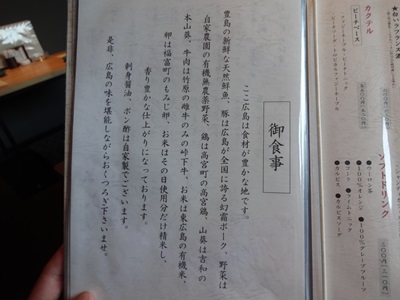 御食事
ここ広島は食材が豊かな地です。
豊島の新鮮な天然鮮魚、豚は広島が全国に誇る幻霜ポーク、野菜は
自家農園の有機無農薬野菜、鶏は高宮町の高宮鶏、山葵は吉和の
本山葵、牛肉は竹原の雌牛のみの峠下牛、お米は東広島の有機米、
卵は福富町のもみじ卵、お米はその日使用分だけ精米し、
香り豊かな仕上がりになっております。
刺身醤油、ポン酢は自家製でございます。
是非、広島の味を堪能しながらおくつろぎ下さいませ。
カクテル
ピーチベース
ソフトドリンク
ウーロン茶
コーラ
100%オレンジ
100%グレープフルーツ
カルピス
カルピスソーダ